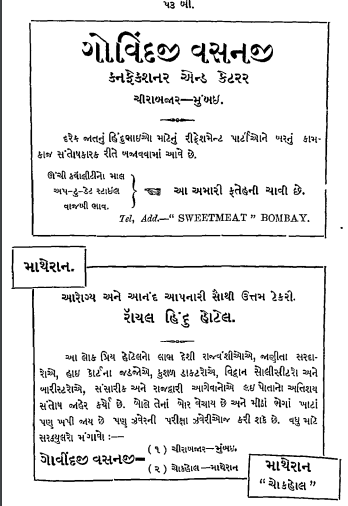 ૫૩ બી.
ગોવિંદજી વસનજી
કનફેકશનર એન્ડ કેટરર
ચીરાબજાર—મુંબઇ.
દરેક જાતનું હિંદુભાઇઓ માટેનું રીફ્રેશમેન્ટ પાર્ટીઓને બરનું કામ-
કાજ સંતોષકારક રીતે બજાવવામાં આવે છે.
ઉંચી કવૉલીટીનો માલ
અપ-ટુ-ડેટ સ્ટાઈલ
વાજબી ભાવ.
આ અમારી ફતેહની ચાવી છે.
Tel, Add.—“ SWEETMEAT ” BOMBAY.
માથેરાન.
આરોગ્ય અને આનંદ આપનારી સૌથી ઉત્તમ ટેકરી.
રૉયલ હિંદુ હોટેલ.
આ લોક પ્રિય હોટેલનો લાભ દેશી રાજવંશીઓએ, જાણીતા સરદા-
રોએ, હાઇ કોર્ટના જડજોએ, કુશળ ડાકટરોએ, વિદ્વાન સૉલીસીટરો અને
બારીસ્ટરોએ, સંસારીક અને રાજદ્વારી આગેવાનોએ લઇ પોતાનો અતિશય
સંતોષ જાહેર કર્યો છે. બોલે તેનાં બોર વેચાય છે અને મીઠાં ભેગાં ખાટાં
પણ ખપી જાય છે પણ ઝવેરની પરીક્ષા ઝવેરીઓજ કરી શકે છે. વધુ માટે
સરક્યુલરો મંગાવો :—
ગોવીંદજી વસનજી—
( ૧ ) ચીરાબજાર—મુંબઇ.
( ૨ ) ચોકહોલ—માથેરાન
માથેરાન
“ ચોકહોલ ”